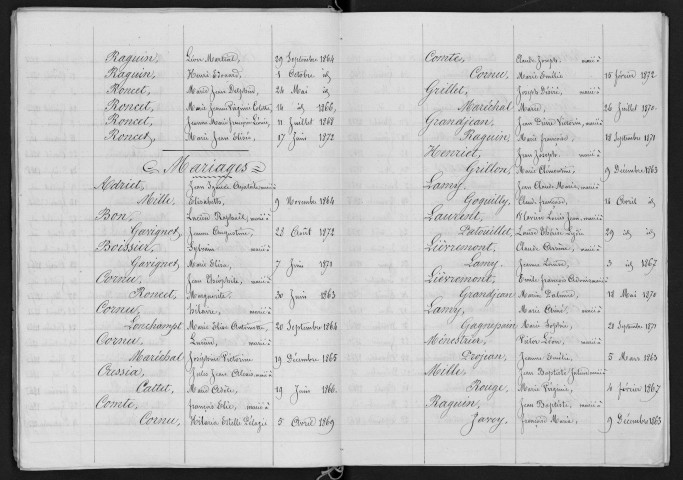 Raguin, Léon Martial, 29 Septembre 1864
Raguin, Henri Edouard, 1 Octobre id
Roncet, Marie Jean Delphine, 24 Mai id
Roncet, Marie Jeanne Virginie Colette 14 id 1866
Roncet, Jeanne Marie François Louis, 11 Juillet 1868
Roncet, Marie Jean Elisée, 17 Juin 1872
Mariages
Adriet, Jean Ignace marié à
Mille, Elisabeth, 9 Novembre 1864
Bon, Lucien Raphaël, marié à
Gavignet, Jeanne Augustine, 22 Août 1872
Boissier, Sylvain marié à
Gavignet, Marie Elisa, 7 Juin 1871
Cornu, Jean Théophile, marié à
Roncet, Marguerite, 30 Juin 1863
Cornu, hilaire, marié à
Lonchampt Marie Elise Antoinette, 20 Septembre 1864
Cornu, Lucien, marié à
Maréchal Joséphine Victorine 19 Décembre 1865
Cressia, Jules Jean marié à
Cattet, Marie Adèle, 19 Juin 1866
Comte, françois Elie, marié à
Cornu, Hilarie Estelle Pélagie 5 Avril 1869
Comte, Claude Joseph, marié à
Cornu, Marie Emélie 15 février 1872
Grillet, Joseph Désiré, marié à
Maréchal Marie, 26 Juillet 1870
Grandjean, Jean Pierre marié à
Raguin, Marie françoise, 18 Septembre 1871
Henriet, Jean Joseph, marié à
Grillon, Marie Clémentine, 9 Décembre 1863
Lamy, Jean Claude Marie, marié à
Goguilly, Claude françoise, 14 Avril id
Laurent, Florion Louis Jean, marié à
Patouillet, 29 id id
Lièvremont, Claude marié à
Lamy, Jeanne Louise, 3 id 1867
Lièvremont, Emile françois marié à
Grandjean Marie 18 Mai 1870
Lamy, Marie Aimé, marié à
Gagnepain Marie Sophie, 21 Septembre 1871
Ménestrier, Victor Léon, marié à
Projean, Jeanne Emélie, 5 Mars 1863
Mille, Jean Baptiste marié à
Rouge, Marie Virginie, 4 février 1867
Raguin, Jean Baptiste, marié à
Javey, françoise Marie, 9 Décembre 1863